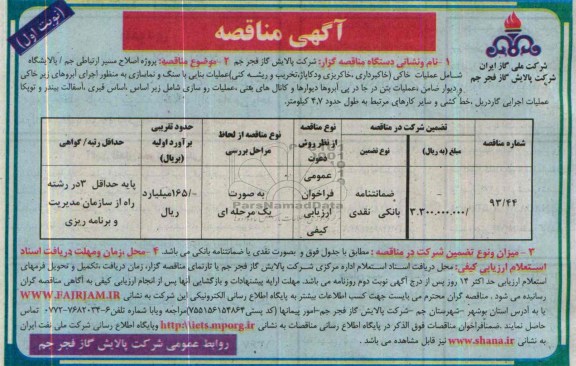 آگهی مناقصه
(نوبت اول)
شرکت ملی گاز ایران
شرکت پالایش گاز فجر جم
۱ - نام ونشانی دستگاه مناقصه گزار: شرکت پالایش گاز فجر جم ۲ - موضوع مناقصه: پروژه اصلاح مسیر ارتباطی جم / پالایشگاه
شامل عملیات خاکی (خاکبرداری ،خاکریزی ودکاپاژ،تخریب و ریشه کنی)عملیات بنایی با سنگ و نماسازی به منظور اجرای آبروهای زیر خاکی
و دیوار ضامن ،عملیات بتن در جا در پی آبروها دیوارها و کانال های هتی ،عملیات رو سازی شامل زیر اساس ،اساس قیری ،آسفالت بیندر و توپکا
عملیات اجرایی گاردریل ،خط کشی و سایر کارهای مرتبط به طول حدود ۴.۷ کیلومتر.
شماره مناقصه
تضمین شرکت در مناقصه
مبلغ (به ریال)
نوع تضمین
نوع مناقصه از نظر روش دعوت
نوع مناقصه از لحاظ مراحل بررسی
حدود تقریبی برآورد اولیه (بریال)
حداقل رتبه/ گواهی
۹۳/۴۴
۳.۳۰۰.۰۰۰.۰۰۰/-
ضمانتنامه بانکی نقدی
عمومی فراخوان ارزیابی کیفی
به صورت یک مرحله ای
۱۶۵/-میلیارد ریال
پایه حداقل ۳در رشته راه از سازمان مدیریت و برنامه ریزی
ParsNamadData
۳ - میزان ونوع تضمین شرکت در مناقصه : مطابق با جدول فوق و بصورت نقدی یا ضمانتنامه بانکی می باشد. ۴- محل ،زمان ومهلت دریافت اسناد
استعلام ارزیابی کیفی: محل دریافت اسناد استعلام اداره مرکزی شرکت پالایش گاز فجر جم یا تارنمای مناقصه گزار، زمان دریافت ،تکمیل و تحویل فرمهای
استعلام ارزیابی حداکثر ۱۴ روز پس از درج آگهی نوبت دوم روزنامه می باشد. مهلت ارایه پیشنهادات و بازگشایی آنها پس از انجام ارزیابی کیفی به آگاهی مناقصه گران
رسانیده می شود . مناقصه گران محترم می بایست جهت کسب اطلاعات بیشتر به پایگاه اطلاع رسانی الکترونیکی این شرکت به نشانی WWW.FAJRJAM.IR
یا به آدرس استان بوشهر -شهرستان جم -شرکت پالایش گاز فجر جم-امور پیمانها (کد پستی ۷۵۵۱۵۶۱۵۴۸۶۲)مراجعه ویا با شماره تلفن ۶-۷۶۸۲۰۳۳-۰۷۷۲ تماس
حاصل نمایند .ضمنافراخوان مناقصات فوق الذکر در پایگاه اطلاع رسانی مناقصات به نشانی http://iets.mporg.ir وپایگاه اطلاع رسانی شرکت ملی نفت ایران
به نشانی www.shana.ir نیز قابل مشاهده می باشد .
روابط عمومی شرکت پالایش گاز فجر جم